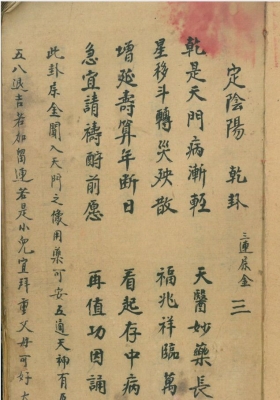 定陰陽 乾卦 三連屬金 ☰
乾是天門病漸輕 天醫妙藥長
星移斗轉災殃散 福兆祥臨萬
增延壽算年断日 看起存中病
急宜請禱酧前愿 再值功因誦
此卦屬金闖入天門之像用藥可安五通天神有
五八退吉若加留連若是小兒宜拜重父母可好